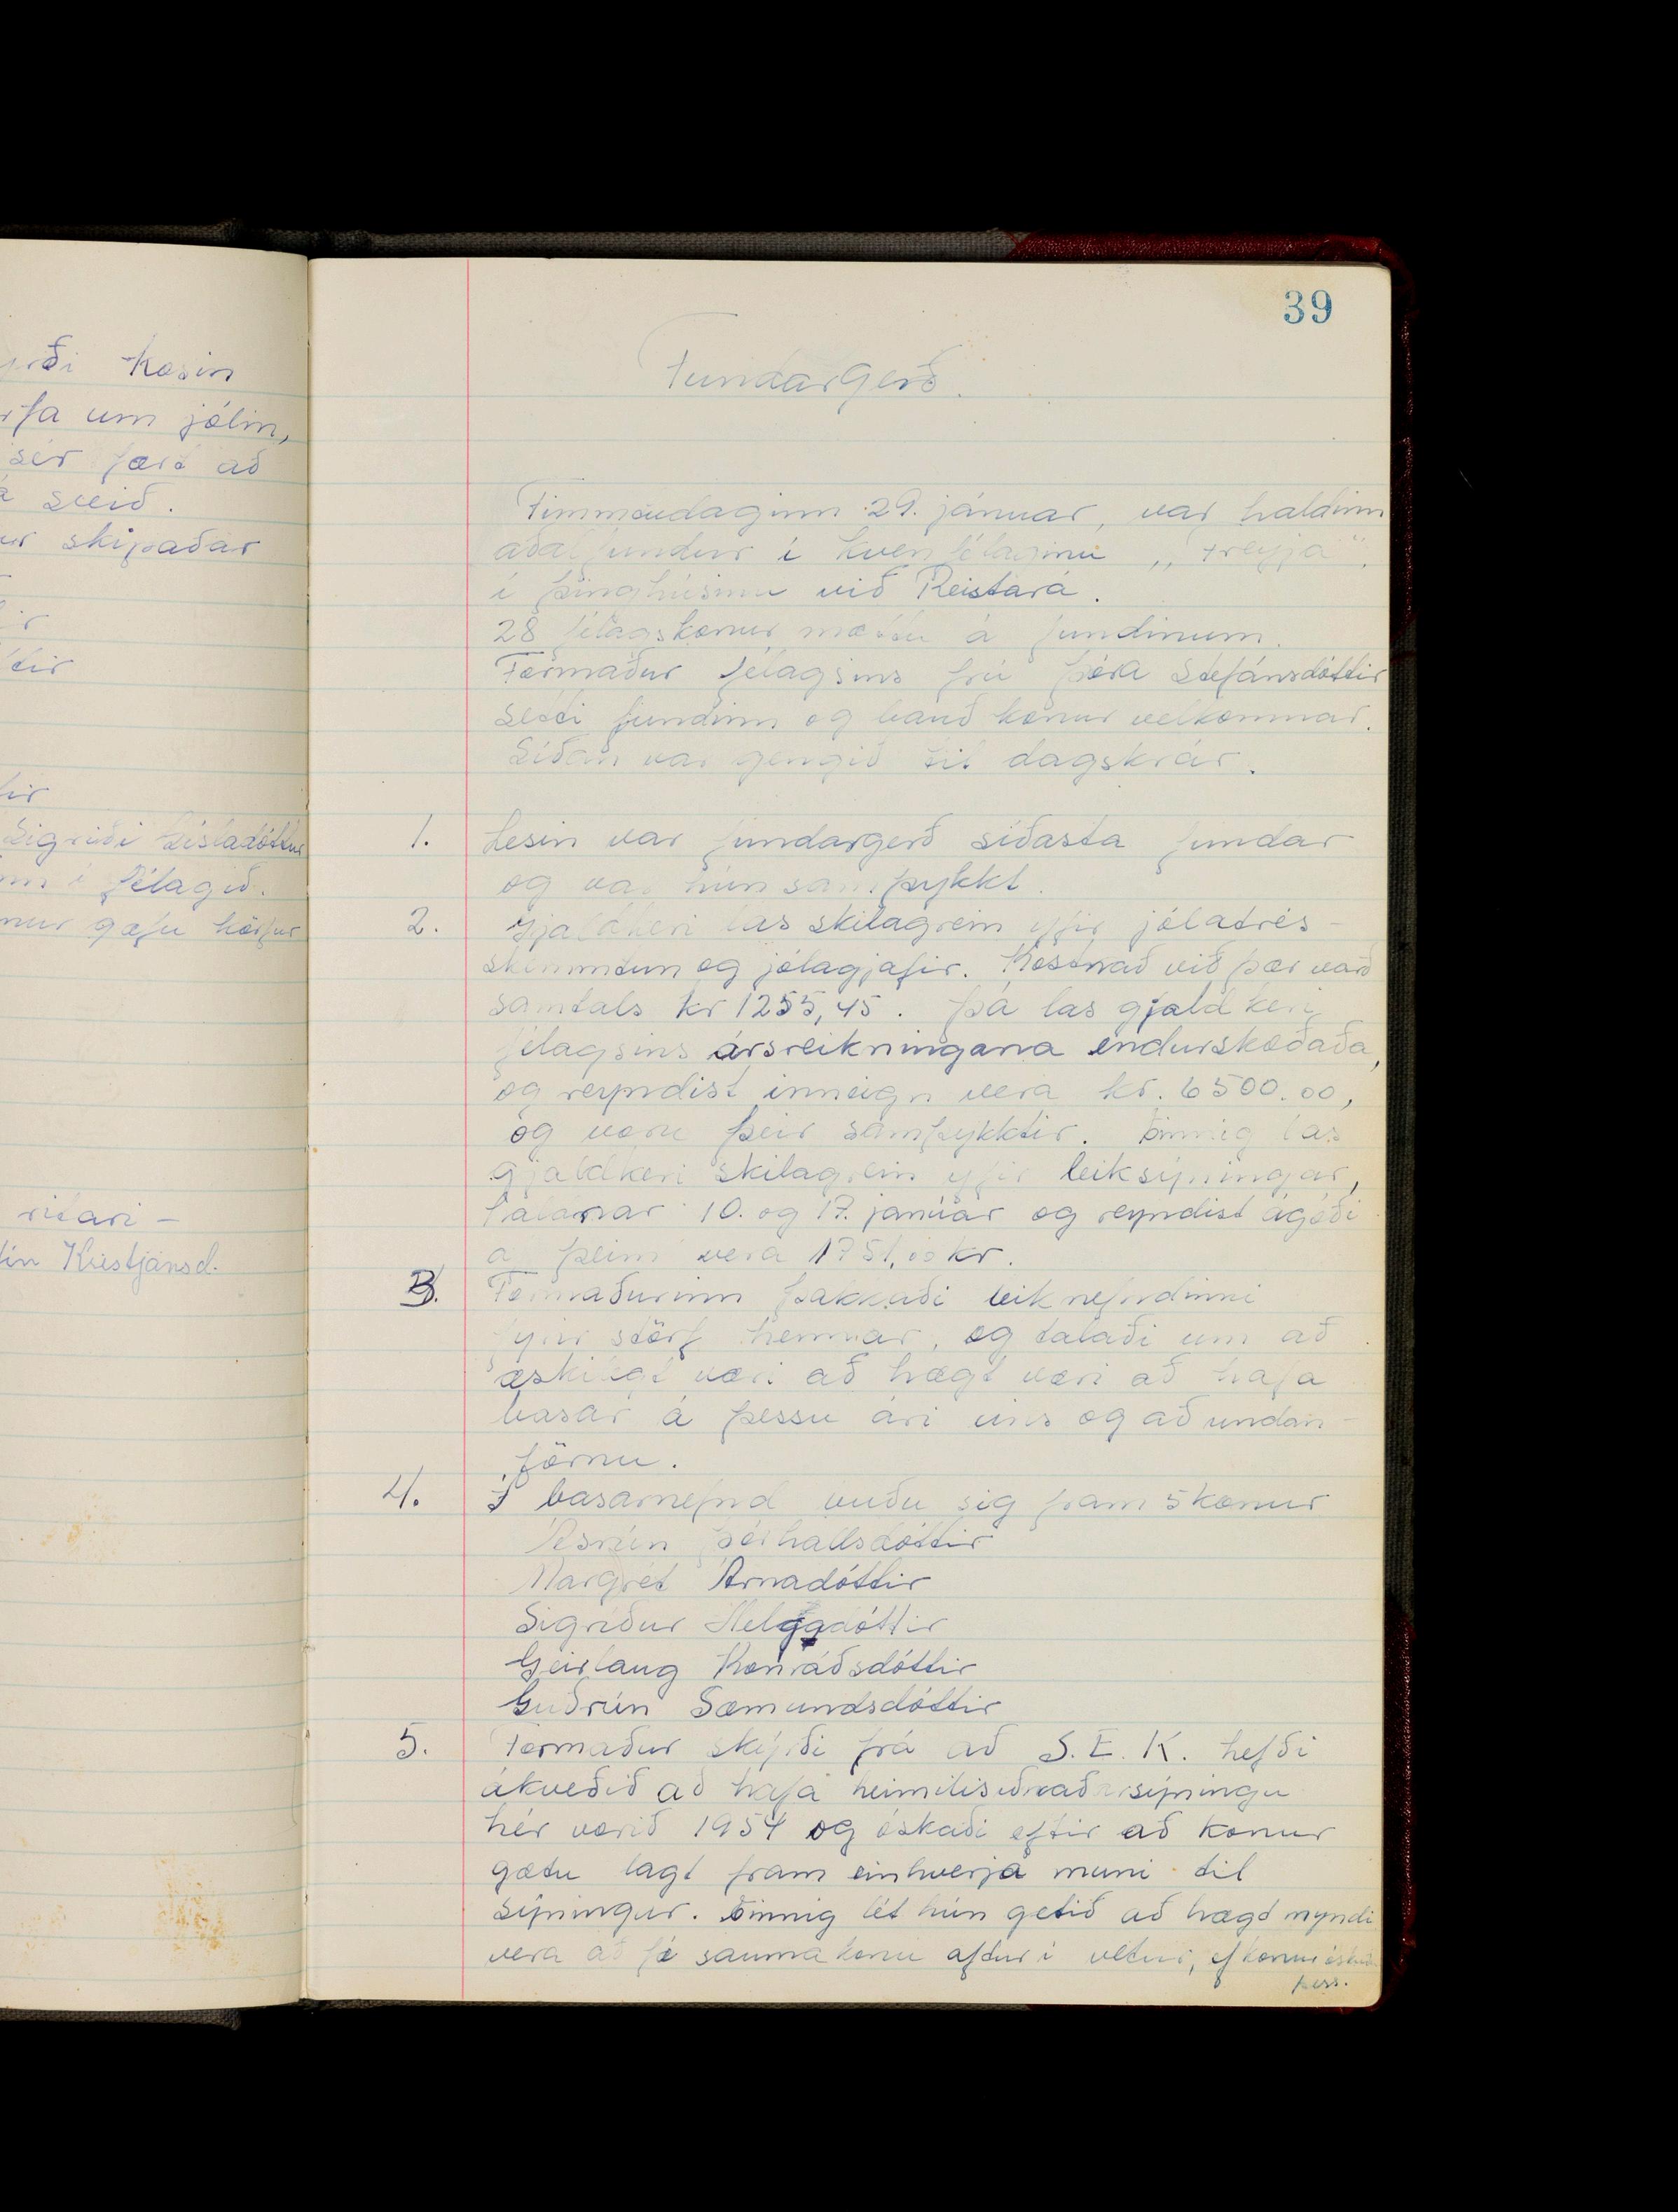 rði kosin
rfa um jólin,
sér fært að
á sveið.
ur skipaðar
ir
tir
ir
Sigríði Gísladóttur
nn í félagið.
nur gáfu körfur
ritari –
tín Kristjánsd.
39
Fundargerð.
Fimmtudaginn 29. janúar, var haldinn
aðalfundur í kvenfélaginu „Freyja“,
í þinghúsinu við Reistará.
28 félagskonur mættu á fundinum.
Formaður félagsins frú Þóra Stefánsdóttir
setti fundinn og bauð konur velkomnar.
Síðan var gengið til dagskrár.
1. Lesin var fundargerð síðasta fundar
og var hún samþykkt.
2. Gjaldkeri las skilagrein yfir jólatrés-
skemmtun og jólagjafir. Kostnað við þær varð
samtals kr 1255,45. Þá las gjaldkeri
félagsins ársreikningana endurskoðaða,
og reyndist inneign vera kr. 6500.00,
og voru þeir samþykktir. Einnig las
gjaldkeri skilagrein yfir leiksýningar,
haldnar 10. og 17. janúar og reyndist ágóði
á þeim vera 1751,00 kr.
3. Formaðurinn þakkaði leiknefndinni
fyrir störf hennar, og talaði um að
æskilegt væri að hægt væri að hafa
basar á þessu ári eins og að undan-
förnu.
4. Í basarnefnd buðu sig fram 5 konur
Ásrún Þórhallsdóttir
Margrét Árnadóttir
Sigríður Helgadóttir
Geirlaug Konráðsdóttir
Guðrún Sæmundsdóttir
5. Formaður skýrði frá að S.E.K. hefði
ákveðið að hafa heimilisiðnaðarsýningu
hér vorið 1954 og óskaði eftir að konur
gætu lagt fram einhverja muni til
sýningar. Einnig lét hún getið að hægt myndi
vera að fá saumakonu aftur í vetur, ef konur óskuðu
þess.